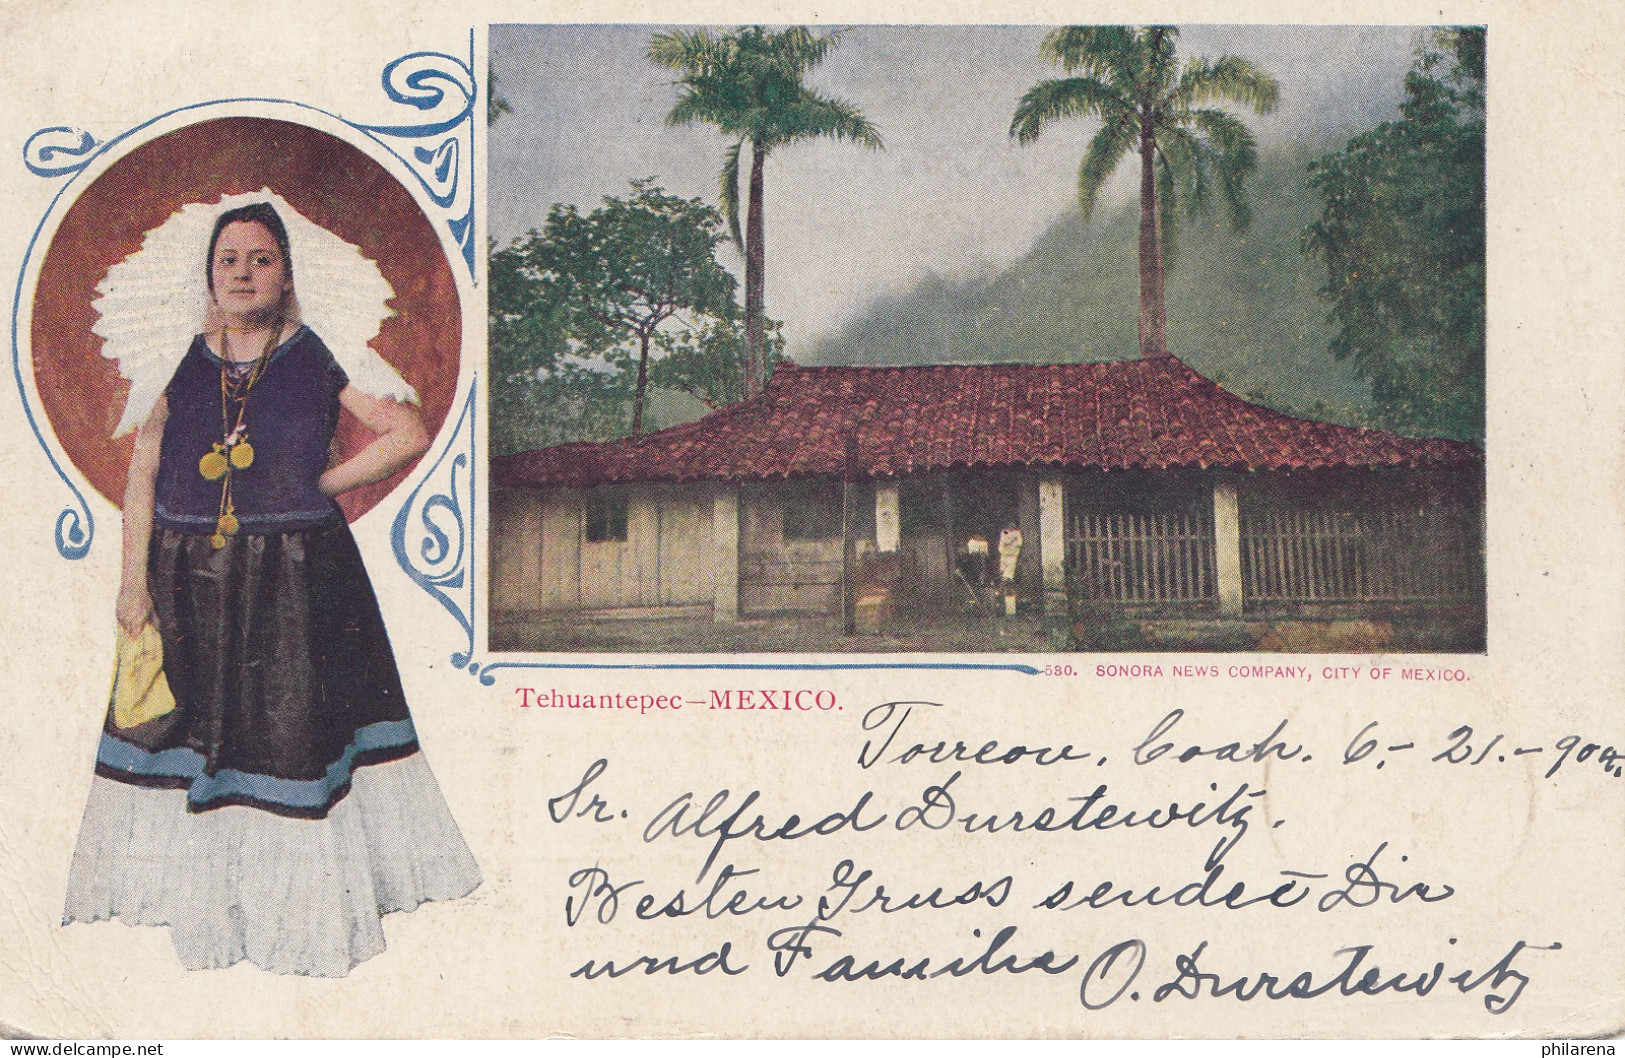 580. SONORA NEWS COMPANY, CITY OF MEXICO.
Tehuantepec—MEXICO.
Torreon, Coah. 6.- 21.-
Sr. Alfred Durstewitz.
Besten Gruss sendet Dir
und Familie O. Durstewitz
delcampe.net
philarena